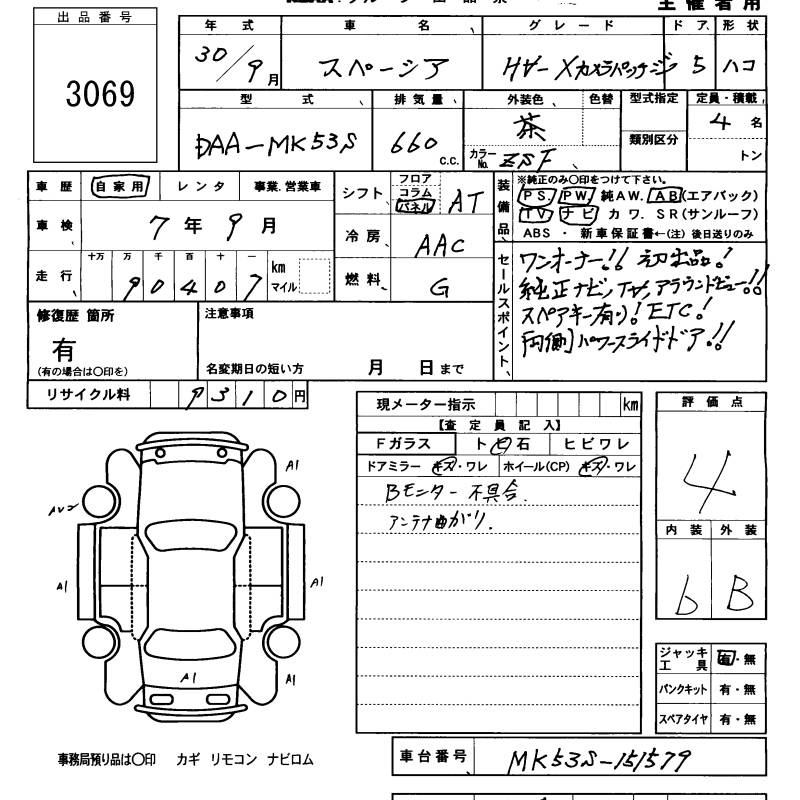 主催者用
出品番号
3069
年式 車名、 グレード ドア、 形状
30/9月 スペーシア HV-Xカメラパッケージ 5 ハコ
型式、 排気量、 外装色、 色替 型式指定 定員・積載、
DAA-MK53S 660 c.c. 茶 4名
カラーNo. ZSF 類別区分 トン
車歴 自家用 レンタ 事業.営業車
シフト、 フロア コラム パネル AT
装備品、 ※純正のみ〇印をつけて下さい。
PS. PW. 純AW. AB(エアバック)
TV ナビ カワ. SR(サンルーフ)
ABS ・ 新車保証書←(注) 後日送りのみ
車検、 7年9月
冷房 AAC
走行、 十万 万 千 百 十 一
90407 km マイル
燃料、 G
セールスポイント、
ワンオーナー!! 初出品!
純正ナビ,TV,アラウンドビュー!!
スペアキー有り! ETC!
両側パワースライドドア!!
修復歴 箇所
有
(有の場合は〇印を)
注意事項
名変期日の短い方 月 日まで
リサイクル料 9310円
現メーター指示 km
【査定員記入】
Fガラス ト⽯石 ヒビワレ
ドアミラー キズ・ワレ ホイール(CP) キズ・ワレ
Bモニター 不具合.
アンテナ曲がり.
評価点
4
内装 外装
b B
A1
AU2
A1
A1
A1
A1
ジャッキ工具 有・無
パンクキット 有・無
スペアタイヤ 有・無
事務局預り品は〇印 カギ リモコン ナビロム
車台番号、 MK53S-151579